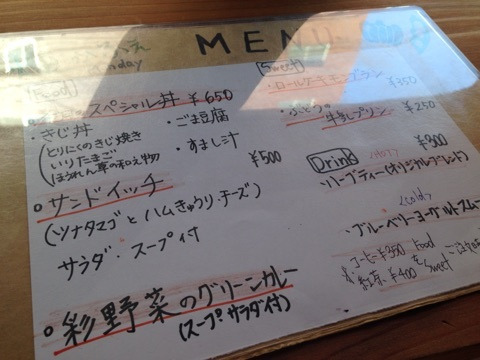 MENU
nday
スペシャル丼 ¥650
・きじ丼
(とりにくのきじ焼き
いりたまご
ほうれん草の和え物)
・ごま豆腐
・すまし汁
サンドイッチ ¥500
(ツナタマゴとハムきゅうり・チーズ)
サラダ・スープ付
彩野菜のグリーンカレー
(スープサラダ付)
Sweet
・ロールケーキモンブラン ¥350
牛乳プリン ¥250
Drink ¥300
・ハーブティー(オリジナルブレンド)
<cold>
・ブルーベリーヨーグルトスムー
コーヒー¥350 Food
紅茶 ¥400 を Sweet